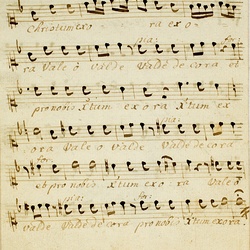 Christum exo ra exo -
pia: for:
ra Vale ô valde Valde decora et
pro nobis Xstum exora Xstum ex
pia:
o ra Vale o valde Valde decora
for:
et pro nobis Xstum exo ra Vale ô
pia: for:
valde Valde decora pro nobis Xstum exora